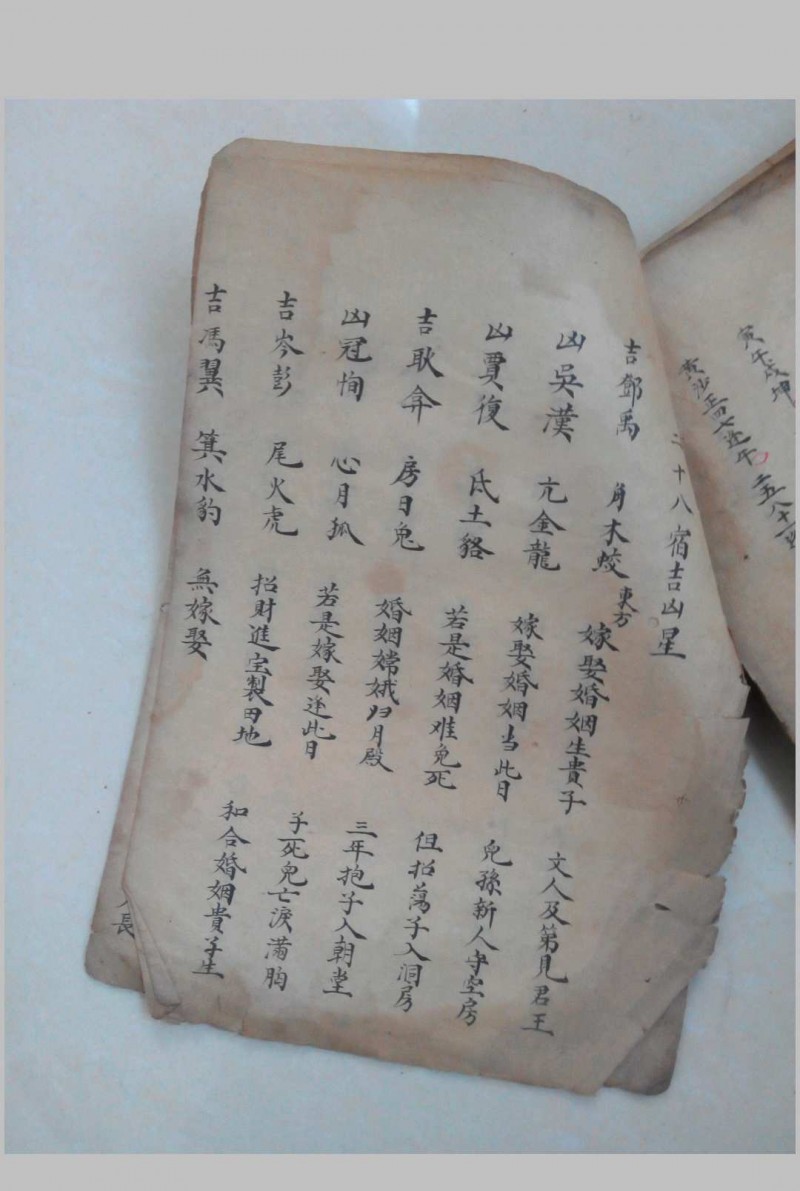 寅午戌坤
黄沙正四七逢午 二五八十一
二十八宿吉凶星
吉鄧禹 角木蛟 東方 嫁娶婚姻生貴子 文人及第見君王
凶吳漢 亢金龍 嫁娶婚姻当此日 兒孫新人守空房
凶賈復 氐土貉 若是婚姻难免死 但招蕩子入洞房
吉耿弇 房日兔 婚姻嫦娥归月殿 三年抱子入朝堂
凶冠恂 心月狐 若是嫁娶逢此日 子死兒亡淚滿胸
吉岑彭 尾火虎 招財進宝製田地 和合婚姻貴子生
吉馮翼 箕水豹 無嫁娶
長